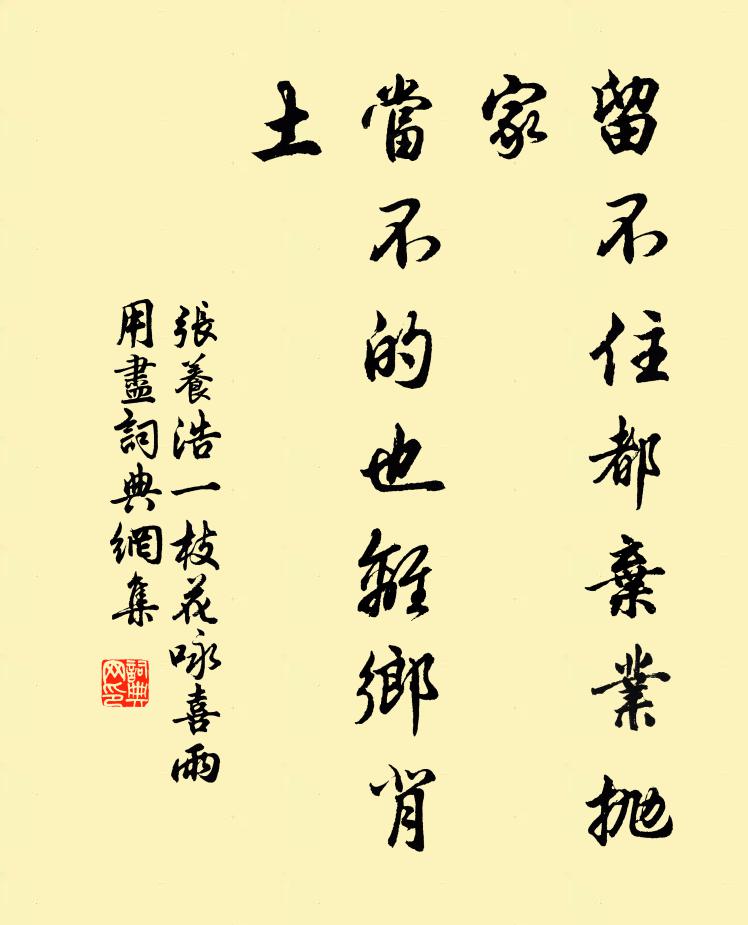 留不住都棄業抛
家
當不的也離鄉背
土
張養浩一枝花咏喜雨
用盡詞典網集
詞典
网印